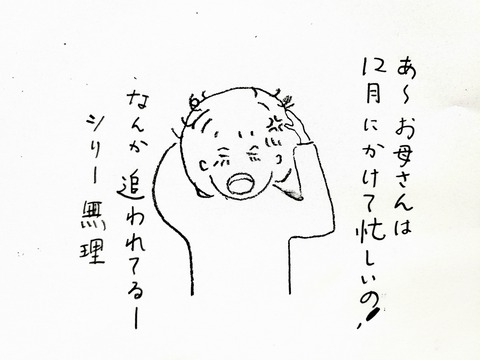 あ〜お母さんは
12月にかけて忙しいの!
なんか追われてるー
シリー無理